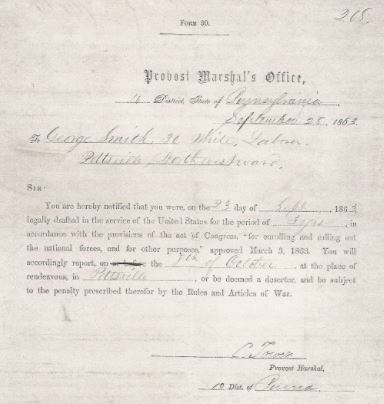 268.
FORM 39.
Provost Marshal's Office,
10 District, State of Pennsylvania
September 28, 1863
To George Smith, 36 White, Labor.
Pottsville, Northwest ward,
SIR:
You are hereby notified that you were, on the 23 day of Sept, 1863
legally drafted in the service of the United States for the period of 3 yrs, in
accordance with the provisions of the act of Congress, "for enrolling and calling out
the national forces, and for other purposes," approved March 3, 1863. You will
accordingly report, on the 8th of October, at the place of
rendezvous, in Pottsville, or be deemed a deserter, and be subject
to the penalty prescribed therefor by the Rules and Articles of War.
C. Tower
Provost Marshal,
10 Dist. of Penna.